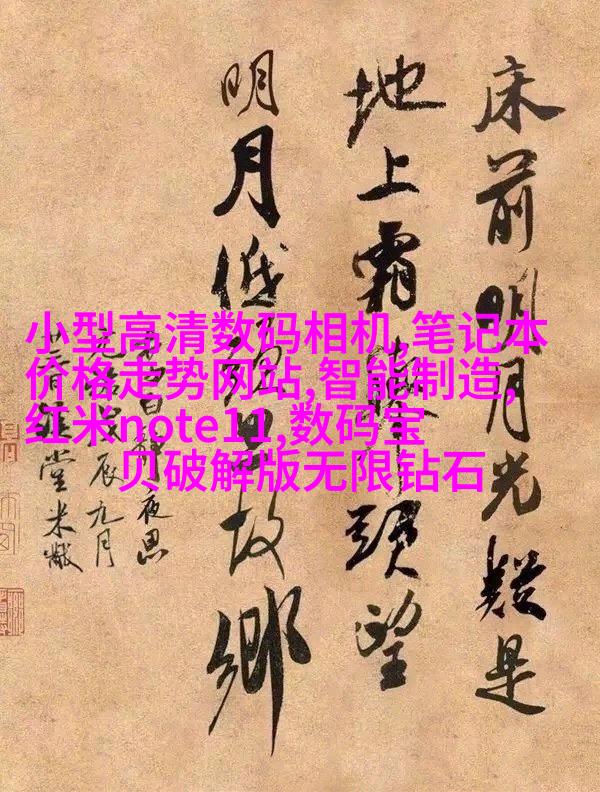 床前明月光疑是
地上霜舉頭望
明月低頭思故鄉
白靜夜思
元祐戊辰九月
堂米黻
小型高清数码相机,笔记本
价格走势网站,智能制造,
红米note11,数码宝
贝破解版无限钻石